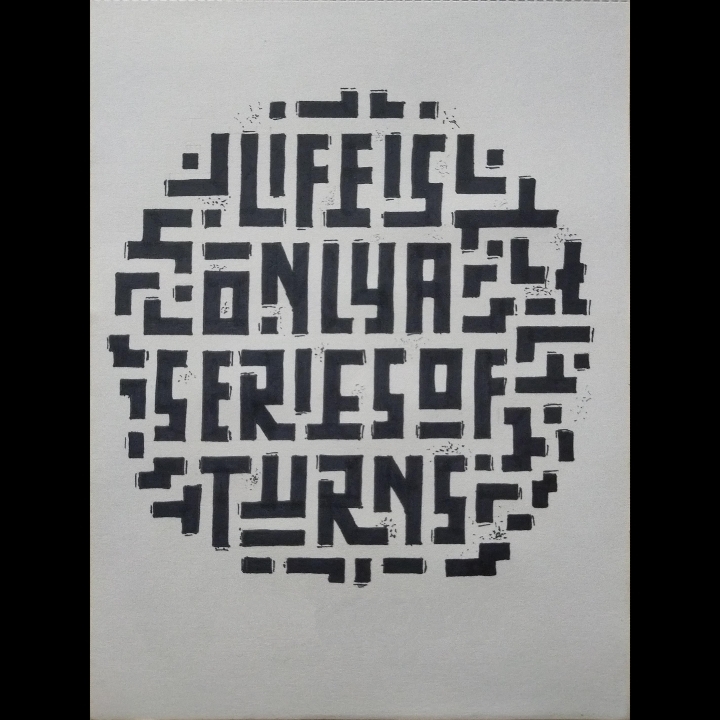 LIFE IS
ONLY A
SERIES OF
TURNS